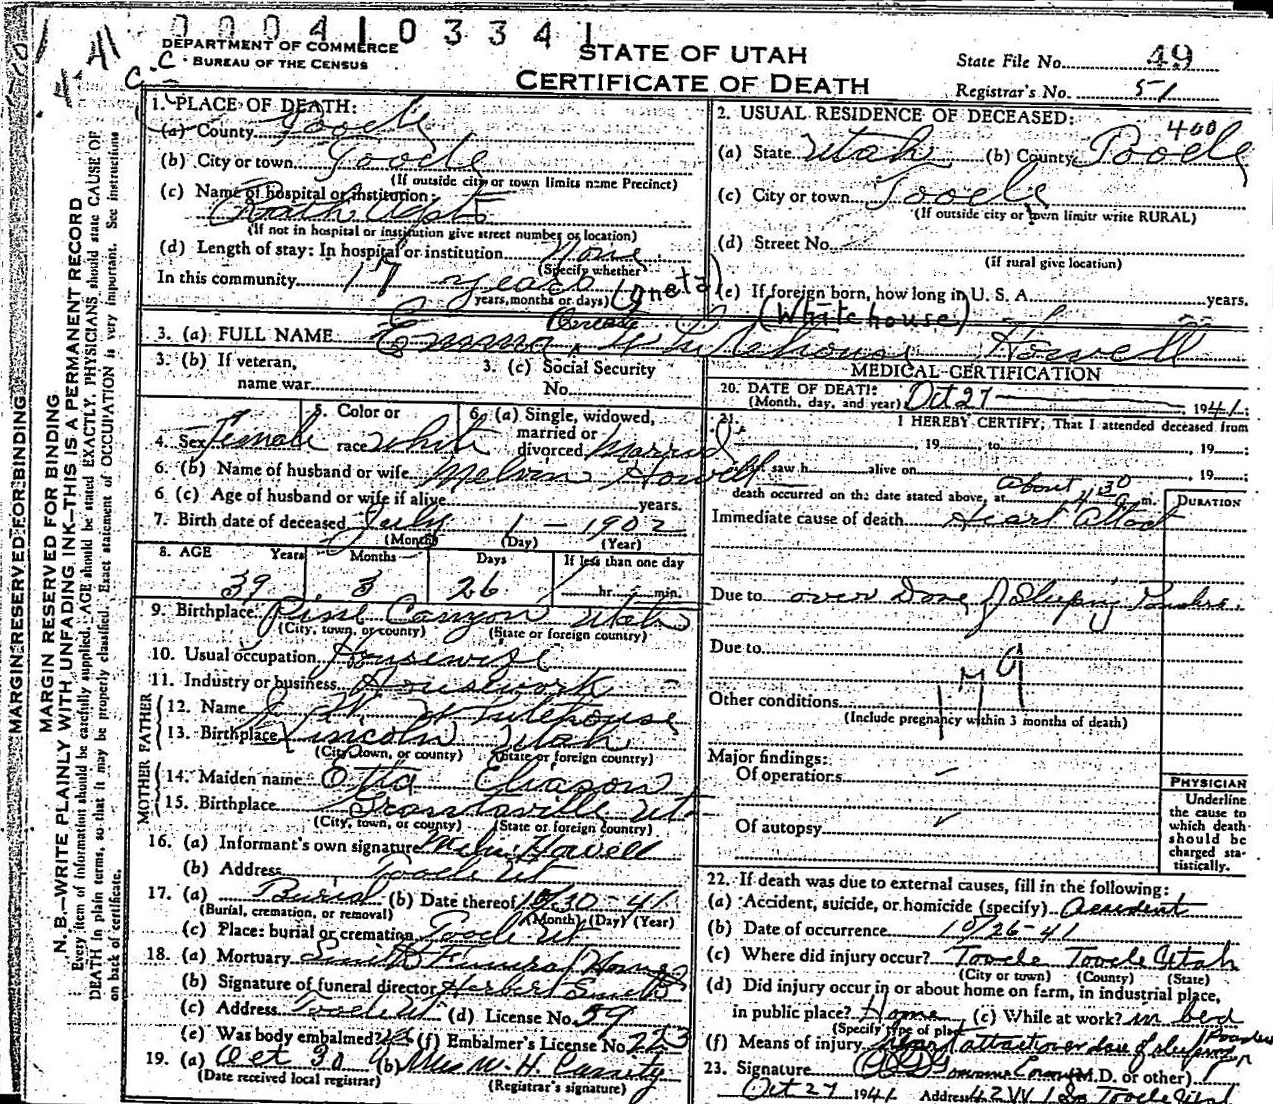 000410334
DEPARTMENT OF COMMERCE
BUREAU OF THE CENSUS
STATE OF UTAH
CERTIFICATE OF DEATH
State File No. 49
Registrar's No. 51
1. PLACE OF DEATH:
(a) County Tooele
(b) City or town Tooele
(If outside city or town limits name Precinct)
(c) Name of hospital or institution:
(If not in hospital or institution give street number or location)
(d) Length of stay: In hospital or institution None
(Specify whether
In this community 17 years
years, months or days)
2. USUAL RESIDENCE OF DECEASED:
400
(a) State Utah (b) County Tooele
(c) City or town Tooele
(If outside city or town limits write RURAL)
(d) Street No.
(if rural give location)
(e) If foreign born, how long in U. S. A. years.
(Whitehouse)
3. (a) FULL NAME Emma Whitehouse Howell
3. (b) If veteran,
name war
3. (c) Social Security
No.
4. Sex Female
5. Color or
race White
6. (a) Single, widowed,
married or
divorced, Married
6. (b) Name of husband or wife Melvin Howell
6 (c) Age of husband or wife if alive years.
7. Birth date of deceased July 1 - 1902
(Month) (Day) (Year)
8. AGE Years Months Days If less than one day
39 3 26 hr. min.
9. Birthplace Pine Canyon Utah
(City, town, or county) (State or foreign country)
10. Usual occupation Housewife
11. Industry or business Housework
FATHER
12. Name Whitehouse
13. Birthplace Lincoln Utah
(City, town, or county) (State or foreign country)
MOTHER
14. Maiden name Etta Eliason
15. Birthplace Grantsville Ut
(City, town, or county) (State or foreign country)
16. (a) Informant's own signature Melvin Howell
(b) Address Tooele Ut
17. (a) Burial (b) Date thereof 10/30-41
(Burial, cremation, or removal) (Month) (Day) (Year)
(c) Place: burial or cremation Tooele Ut
18. (a) Mortuary Smith Funeral Home
(b) Signature of funeral director Herbert Smith
(c) Address Tooele Ut (d) License No. 59
(e) Was body embalmed? (f) Embalmer's License No. 223
19. (a) Oct 30 (b) Mrs W. H. Cassity
(Date received local registrar) (Registrar's signature)
MEDICAL CERTIFICATION
20. DATE OF DEATH:
(Month, day, and year) Oct 27 1941
21. I HEREBY CERTIFY, That I attended deceased from
, 19 , to , 19 ;
I last saw h alive on , 19 ;
death occurred on the date stated above, at about 4:30 a. m.
DURATION
Immediate cause of death Heart Attack
Due to over Dose of Sleeping Powders.
Due to
Other conditions
(Include pregnancy within 3 months of death)
179
Major findings:
Of operations
Of autopsy
PHYSICIAN
Underline
the cause to
which death
should be
charged sta-
tistically.
22. If death was due to external causes, fill in the following:
(a) Accident, suicide, or homicide (specify) Accident
(b) Date of occurrence 10/26-41
(c) Where did injury occur? Tooele Tooele Utah
(City or town) (County) (State)
(d) Did injury occur in or about home on farm, in industrial place,
in public place? Home (e) While at work? in bed
(Specify type of place)
(f) Means of injury heart attack over dose of sleeping Powder
23. Signature (M.D. or other)
Oct 27 1941 Address Tooele Utah
MARGIN RESERVED FOR BINDING
MARGIN RESERVED FOR BINDING
N. B.—WRITE PLAINLY WITH UNFADING INK—THIS IS A PERMANENT RECORD
Every item of information should be carefully supplied. AGE should be stated EXACTLY. PHYSICIANS should state CAUSE OF
DEATH in plain terms, so that it may be properly classified. Exact statement of OCCUPATION is very important. See instructions
on back of certificate.